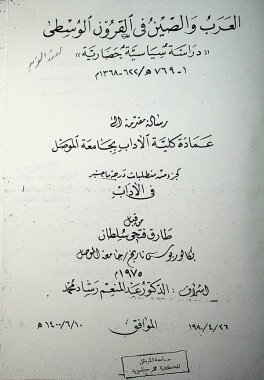 العرب والصين في القرون الوسطى
« دراسة سياسية حضارية »
١-٧٦٩هـ/٦٢٢-١٣٦٨م
رسالة مقدمة الى
عمادة كلية الآداب بجامعة الموصل
كجزء من متطلبات درجة ماجستير
في الآداب
من قبل
طارق فتحي سلطان
بكالوريوس تاريخ / جامعة الموصل
١٩٧٥
اشراف : الدكتور عبدالمنعم رشاد محمد
١٩٨٠/٤/٢٦ الموافق ١٤٠٠/٦/١٠هـ
جامعة الموصل